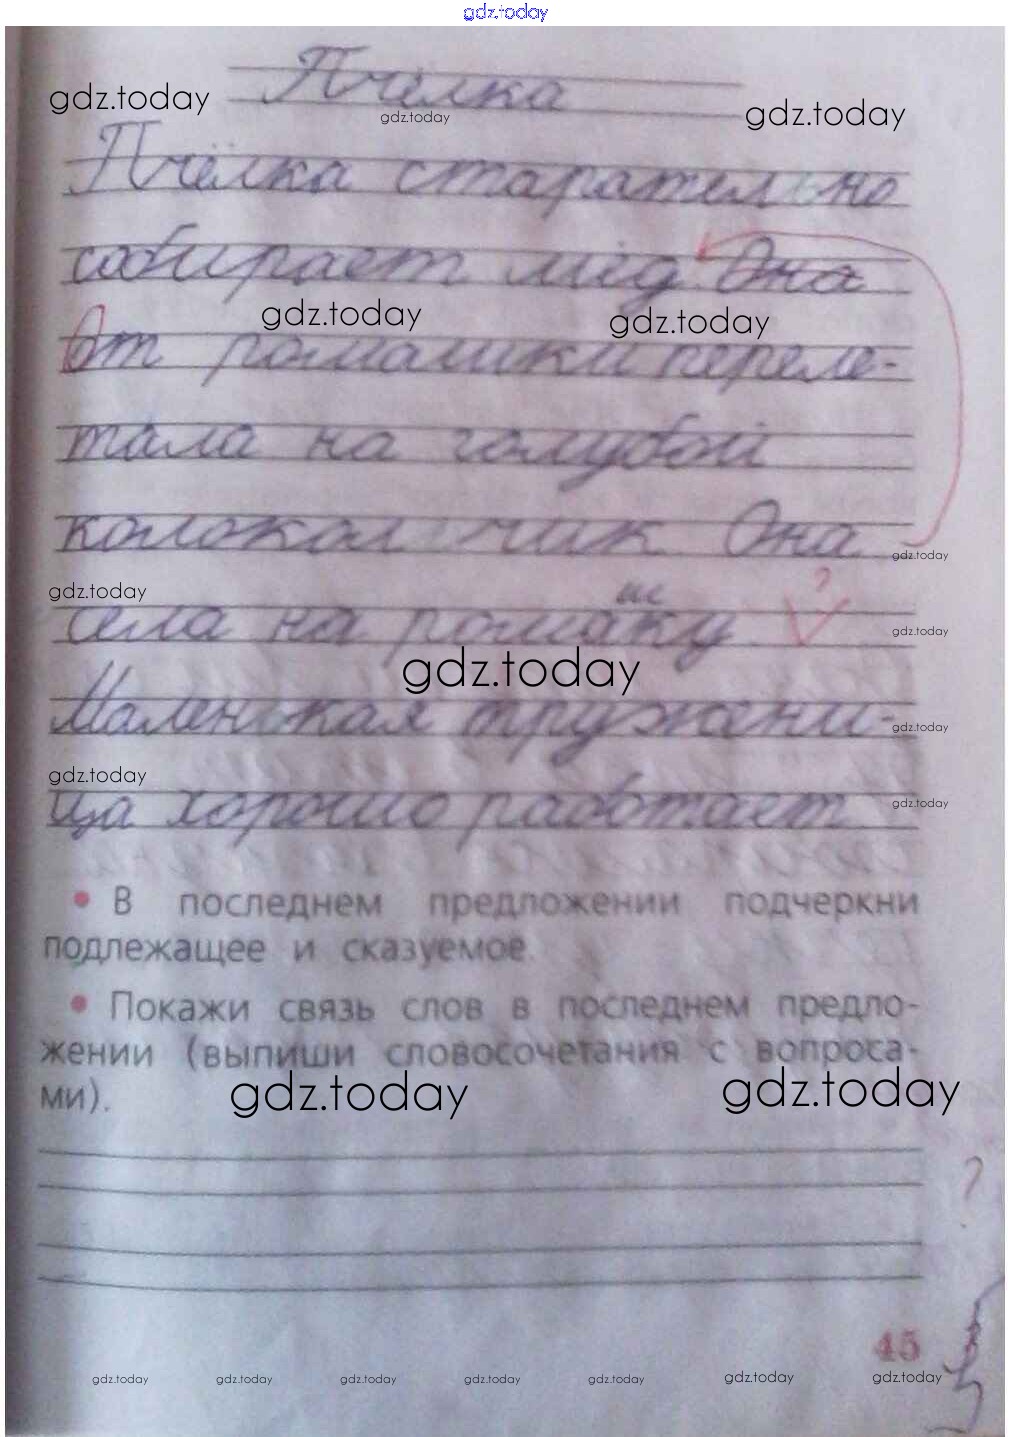 gdz.today
Пчёлка
gdz.today
gdz.today
gdz.today
Пчёлка старательно
собирает мёд. Она
gdz.today
gdz.today
От ромашки переле-
тала на голубой
колокольчик Она
gdz.today
gdz.today
ш
?
села на ромаку
gdz.today
gdz.today
Маленькая тружени-
gdz.today
gdz.today
ца хорошо работает
gdz.today
• В последнем предложении подчеркни
подлежащее и сказуемое.
• Покажи связь слов в последнем предло-
жении (выпиши словосочетания с вопроса-
ми).
gdz.today
gdz.today
?
45
gdz.today gdz.today gdz.today gdz.today gdz.today gdz.today gdz.today